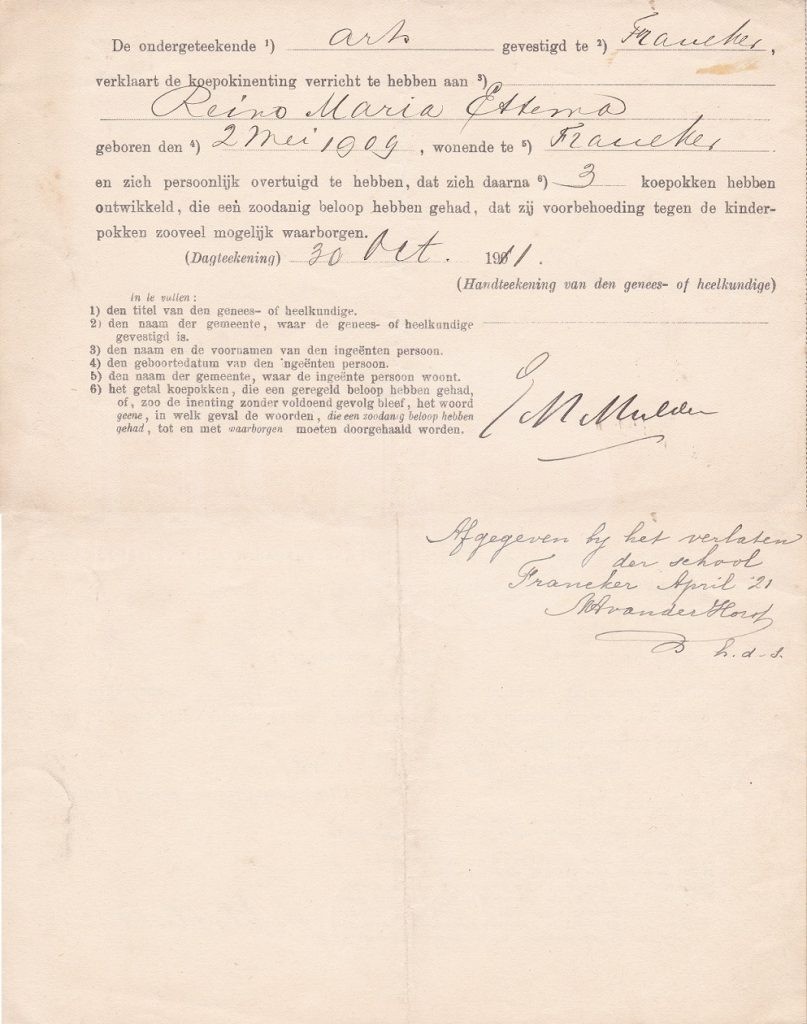 De ondergeteekende 1) arts gevestigd te 2) Franeker,
verklaart de koepokinenting verricht te hebben aan 3)
Reino Maria Ettema
geboren den 4) 2 Mei 1909, wonende te 5) Franeker
en zich persoonlijk overtuigd te hebben, dat zich daarna 6) 3 koepokken hebben
ontwikkeld, die een zoodanig beloop hebben gehad, dat zij voorbehoeding tegen de kinder-
pokken zooveel mogelijk waarborgen.
(Dagteekening) 30 Oct. 1911.
(Handteekening van den genees- of heelkundige)
In te vullen:
1) den titel van den genees- of heelkundige.
2) den naam der gemeente, waar de genees- of heelkundige
gevestigd is.
3) den naam en de voornamen van den ingeënten persoon.
4) den geboortedatum van den ingeënten persoon.
5) den naam der gemeente, waar de ingeënte persoon woont.
6) het getal koepokken, die een geregeld beloop hebben gehad,
of, zoo de inenting zonder voldoend gevolg bleef, het woord
geene, in welk geval de woorden, die een zoodanig beloop hebben
gehad, tot en met waarborgen moeten doorgehaald worden.
M Mulder
Afgegeven by het verlaten
der school
Franeker April '21
MA van der Horst
h.d.s.